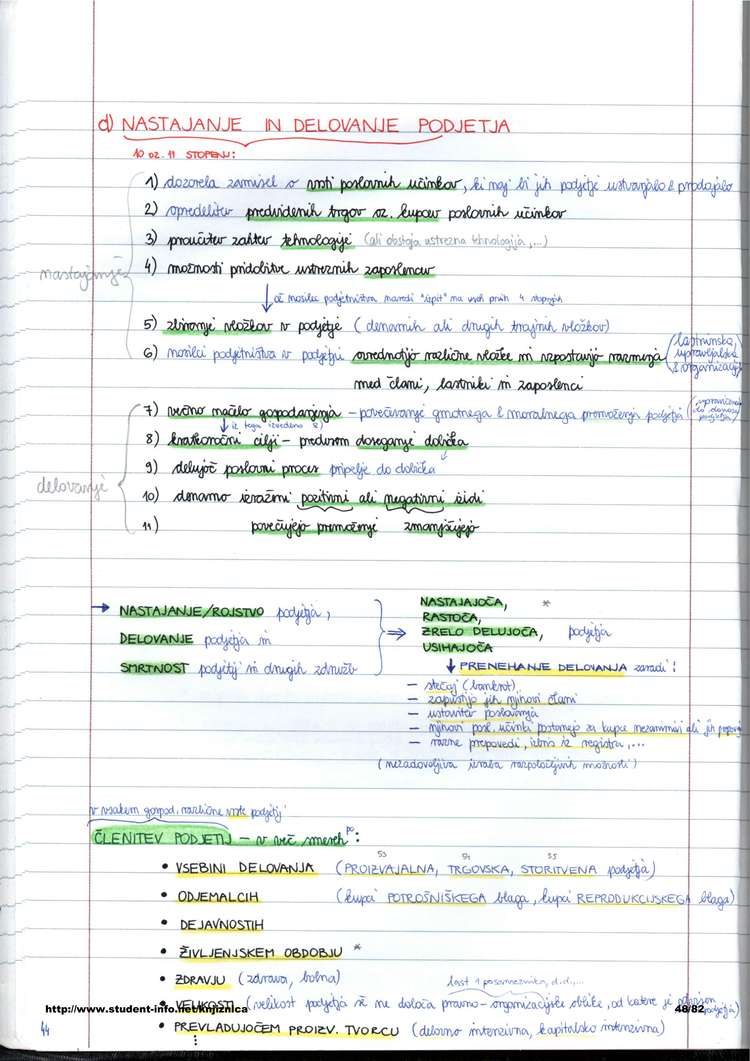 d) NASTAJANJE IN DELOVANJE PODJETJA
10 oz. 11 STOPENJ:
1) dozorela zamisel o vrsti poslovnih učinkov, ki naj bi jih podjetje ustvarjalo & prodajalo
2) opredelitev predvidenih trgov oz. kupcev poslovnih učinkov
3) proučitev zahtev tehnologije (ali obstoja ustrezna tehnologija,...)
nastajanje
4) možnosti pridobitve ustreznih zaposlencev
če nosilec podjetništva naredi "izpit" na vseh prvih 4 stopnjah
5) zbiranje vložkov v podjetje (denarnih ali drugih trajnih vložkov)
6) nosilci podjetništva v podjetju ovrednotijo različne vlože in vzpostavijo razmerja (lastninska, upravljalska & organizacij
med člani, lastniki in zaposlenci
7) večno načelo gospodarjenja – povečevanje gmotnega & moralnega premoženja podjetja
iz tega izvedeno 8)
8) kratkoročni cilji – predvsem doseganje dobička
9) delujoč poslovni proces pripelje do dobička
delovanje
10) denarno izraženi pozitivni ali negativni izidi
11) povečujejo premoženje zmanjšujejo
→ NASTAJANJE/ROJSTVO podjetja,
DELOVANJE podjetja in
SMRTNOST podjetij in drugih združb
⇒ NASTAJAJOČA, *
RASTOČA,
ZRELO DELUJOČA, podjetja
USIHAJOČA
↓ PRENEHANJE DELOVANJA zaradi:
– stečaj (bankrot)
– zapustijo jih njihovi člani
– ustavitev poslovanja
– njihovi posl. učinki postanejo za kupce nezanimivi ali jih
– razne prepovedi, izbris iz registra,...
(nezadovoljiva izraba razpoložljivih možnosti)
v vsakem gospod. različne vrste podjetij
ČLENITEV PODJETIJ – v več smereh po:
53 54 55
• VSEBINI DELOVANJA (PROIZVAJALNA, TRGOVSKA, STORITVENA podjetja)
• ODJEMALCIH (kupci POTROŠNIŠKEGA blaga, kupci REPRODUKCIJSKEGA blaga)
• DEJAVNOSTIH
• ŽIVLJENJSKEM OBDOBJU *
• ZDRAVJU (zdrava, bolna)
last 1 posameznika, d.d.,...
• VELIKOSTI (velikost podjetja še ne določa pravno-organizacijske oblike, od katere je podjetja)
http://www.student-info.net/knjiznica
48/82
• PREVLADUJOČEM PROIZV. TVORCU (delovno intenzivna, kapitalsko intenzivna)
44